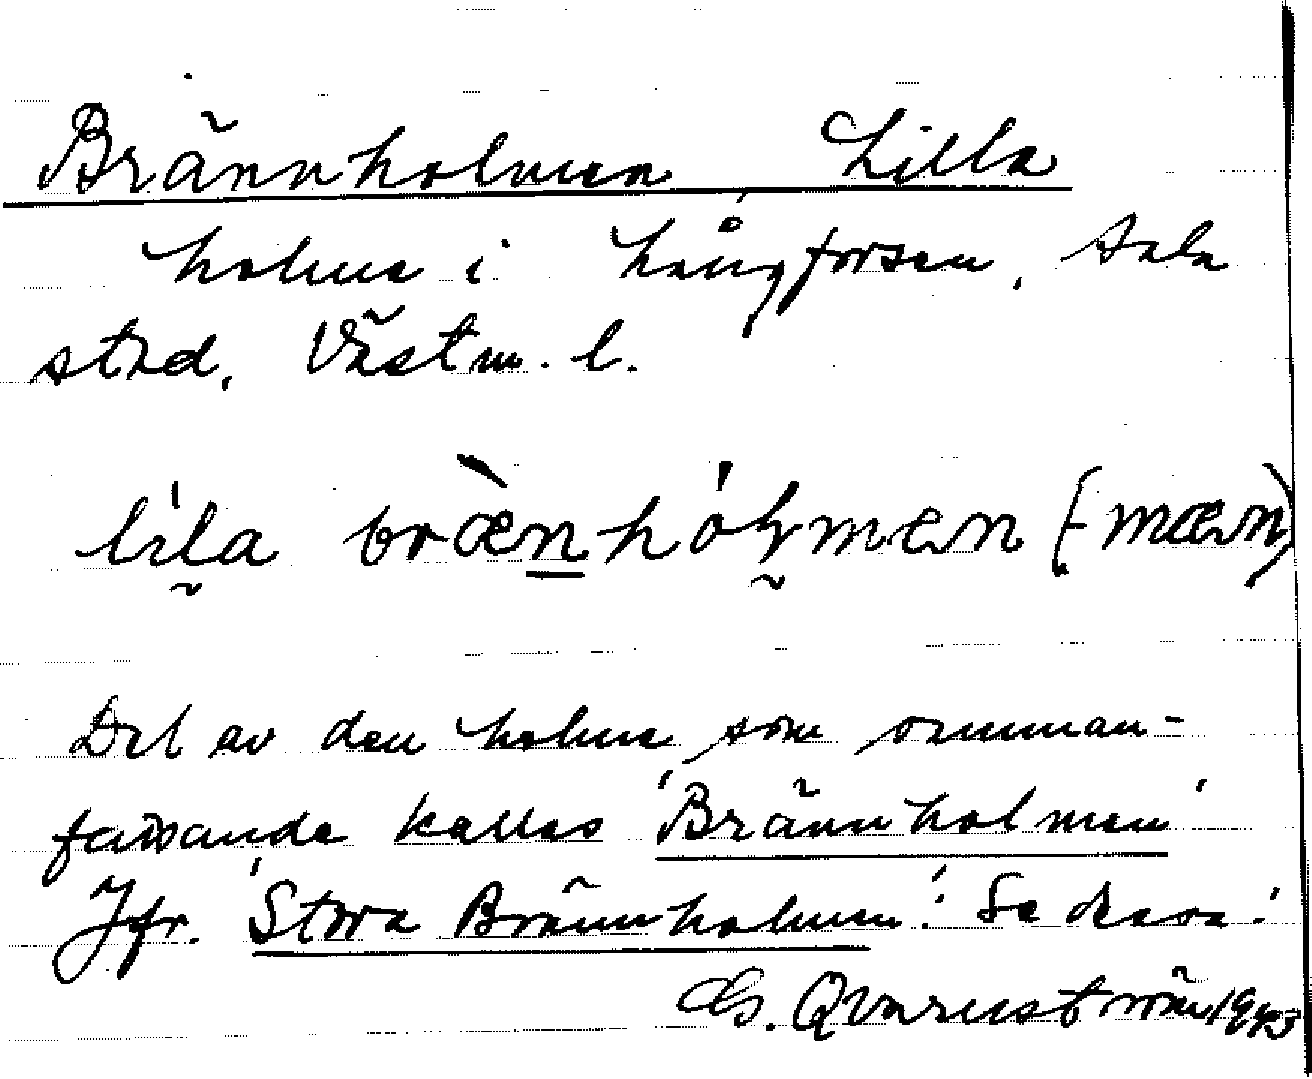 Brännholmen Lilla
holme i Långforsen, Sala
stad, Västm. l.
lila brænhólmen (-mæn)
Del av den holme som samman-
fattande kallas 'Brännholmen'
Jfr. 'Stora Brännholmen'. Se dessa!
G. Qvarnström 1943